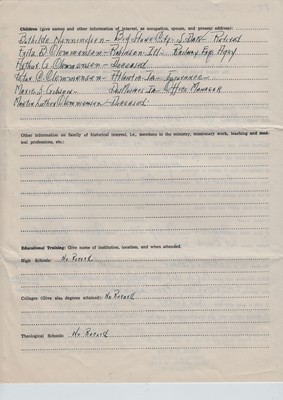 Children (give names and other information of interest, as occupation, spouse, and present address)
Clothilde Menningsen - Big Stone City - S. Dak - Retired
Frita B Clemmensen - Robinson Ill - Railway Exp. Agcy
Hathor G. Clemmensen - Deceased
Peter C. Clemmensen - Atlantic Ia - Insurance
Marie S. Gibson - Des Moines Ia - Office Manager
Martin Luther Clemmensen - Deceased.
Other information on family of historical interest, i.e., members in the ministry, missionary work, teaching and medical professions, etc.:
Educational Training: Give name of institution, location, and when attended.
High Schools: No Record
Colleges (Give also degrees attained): No Record
Theological Schools: No Record